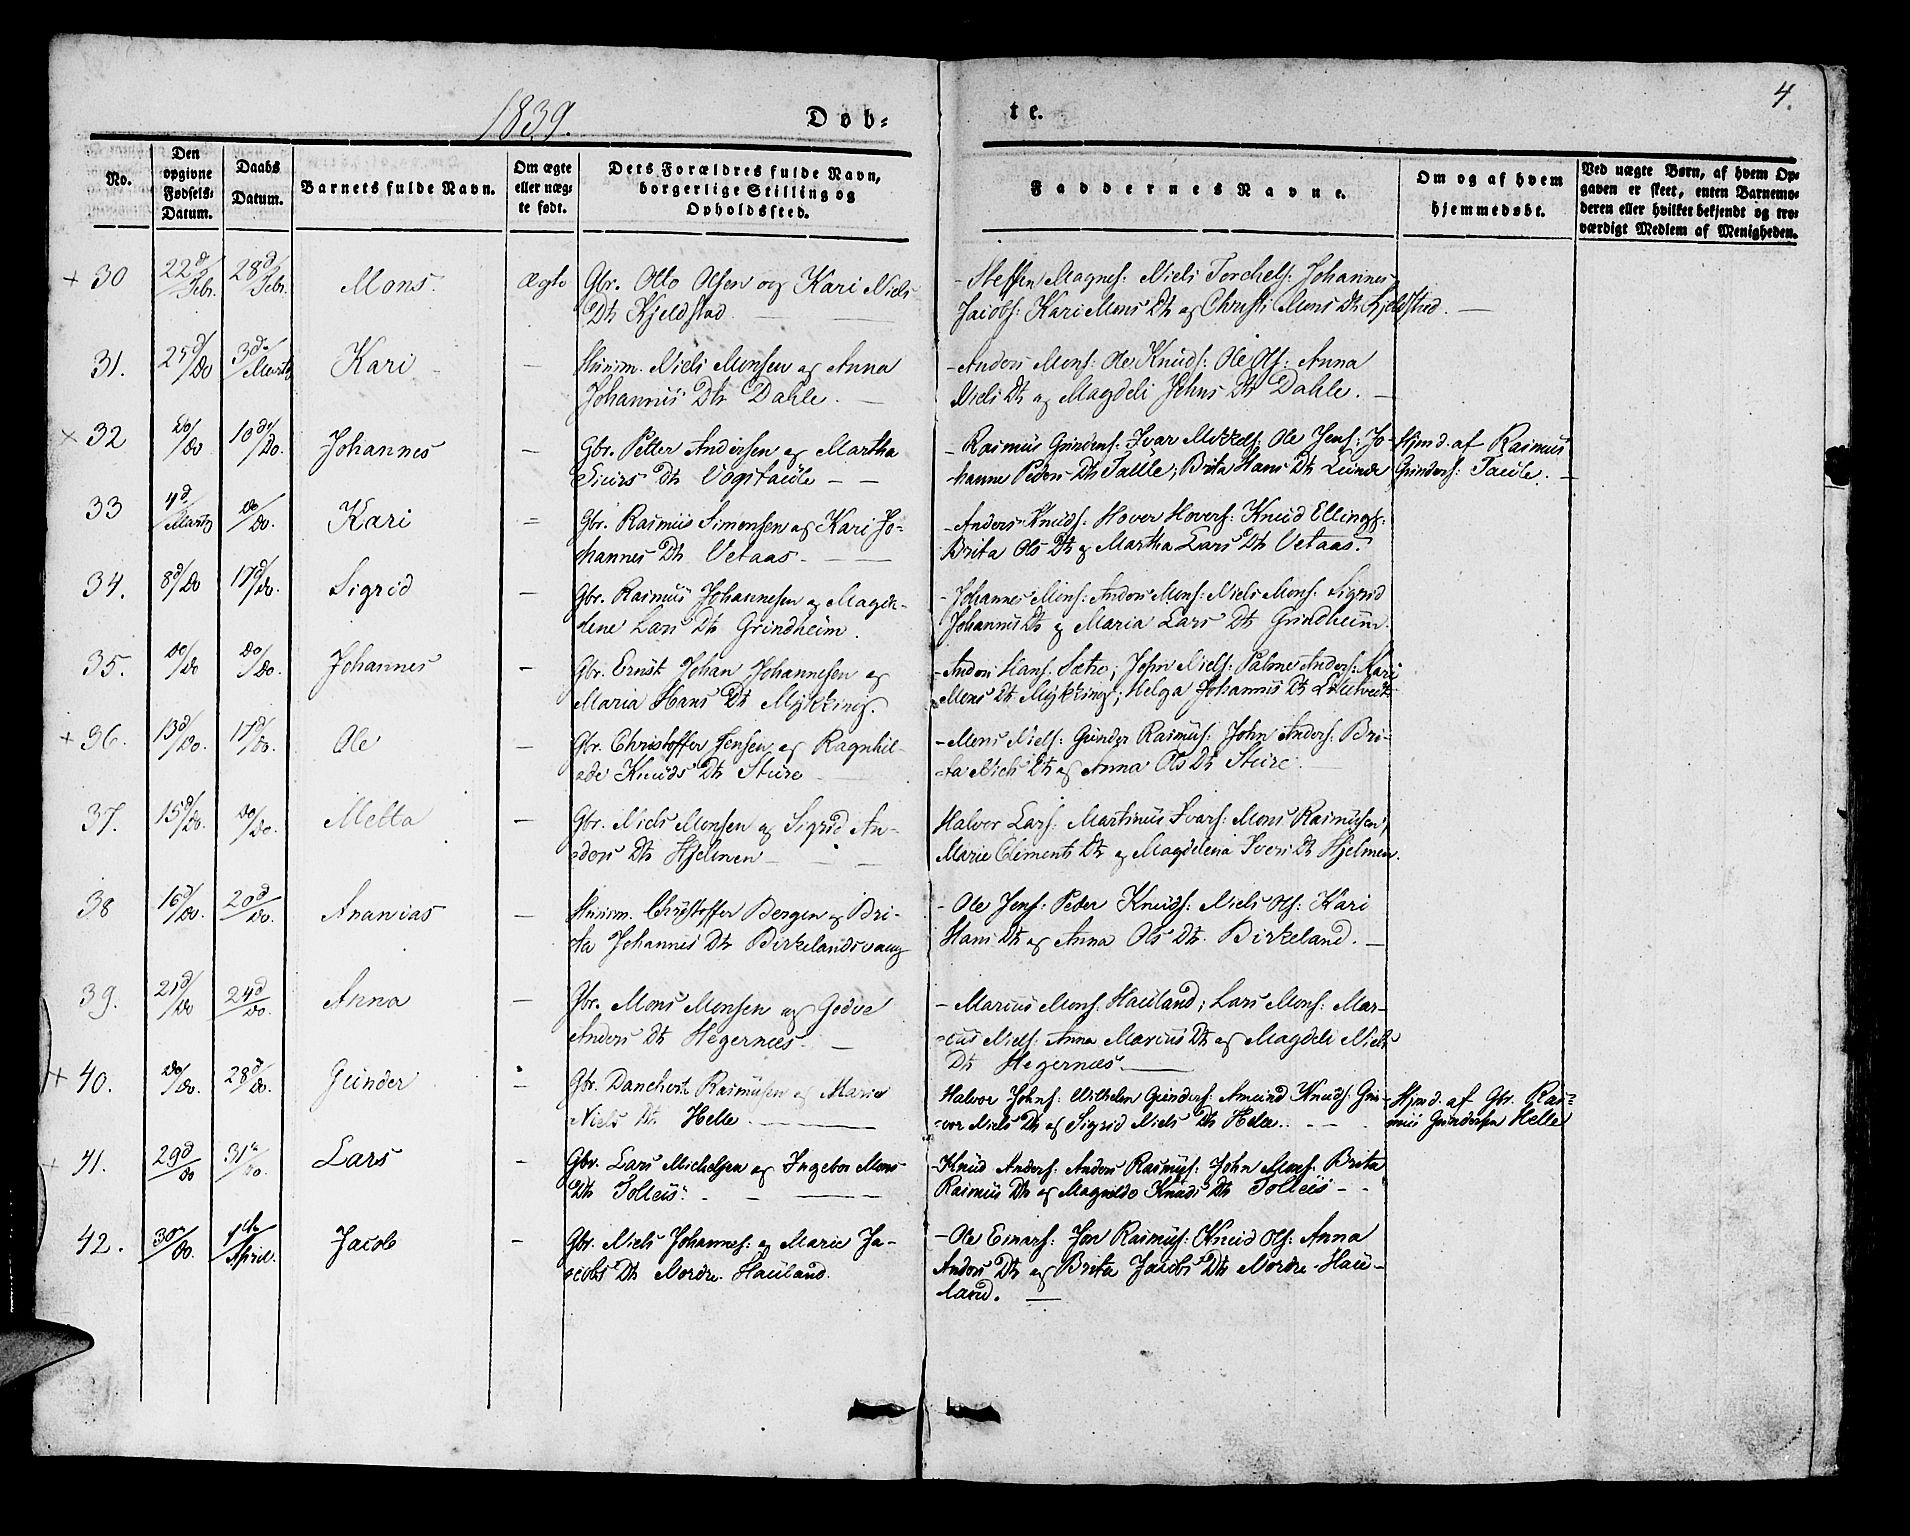 1839.
Døb=
te.
4.
No.
Den opgivne Fødsels-Datum.
Daabs Datum.
Barnets fulde Navn.
Om ægte eller uægte født.
Dets Forældres fulde Navn, borgerlige Stilling og Opholdssted.
Faddernes Navne.
Om og af hvem hjemmedøbt.
Ved uægte Børn, af hvem Op-
gaven er skeet, enten Barnemo-
deren eller hvilket bekjendt og tro-
værdigt Medlem af Menigheden.
+ 30 22d/Febr. 28d/Febr. Mons. Ægte Gbr. Otto Olsen og Kari Niels
Dtr Kjeldstad
- Steffen Magnes: Niels Torchels: Johannes
Jacobs: Kari Mons Dtr og Christi Mons Dtr Kjeldstad. -
31. 25d/Do 3de/Marts Kari - Huusm. Niels Monsen og Anna
Johannis Dtr Dahle. -
- Anders Mons: Ole Knuds: Ole Ols: Anna
Niels Dtr og Magdeli Johns Dtr Dahle. -
× 32 Do/Do 10d/Do. Johannes - Gbr. Petter Andersen og Martha
Siurs Dtr Vogstaule - -
- Rasmus Gunders: Ivar Mikkels: Ole Jens: Jo-
hanne Peders Dtr Taule, Brita Hans Dtr Lunde
Hjmd. af Rasmus
Gunders: Taule. -
33 4d/Marts Do/Do. Kari - Gbr. Rasmus Simonsen og Kari Jo-
hannes Dtr Vetaas. -
- Anders Knuds: Hover Hovers: Knud Ellings:
Brita Ols Dtr og Martha Lars Dtr Vetaas.
34. 8d/Do 17d/Do. Sigrid - Gbr. Rasmus Johannesen og Magde-
lene Lars Dtr Grindheim.
- Johannes Mons: Anders Mons: Niels Mons: Sigrid
Johannis Dtr og Maria Lars Dtr Grindheim.
35. Do/Do Do/Do. Johannes - Gbr. Ernst Johan Johannesen og
Maria Hans Dtr Mykking.
- Anders Hans: Sætre; John Niels: Palme Anders: Kari
Mons Dtr Mykking; Helga Johannis Dtr
+ 36. 13d/Do. 17d/Do. Ole - Gbr. Christoffer Jensen og Ragnhil-
de Knuds Dtr Sture
- Mons Niels: Gunder Rasmus: John Anders: Bri-
ta Niels Dtr og Anna Ols Dtr Sture.
37. 15d/Do. Do/Do. Metta - Gbr. Niels Monsen og Sigrid An-
ders Dtr Hjelmen - -
Halvor Lars: Martinus Ivars: Mons Rasmusen,
Marie Clements Dtr og Magdelena Ivers Dtr Hjelmen.
38 16d/Do. 20d/Do. Ananias - Huusm. Christoffer Bergen og Bri-
ta Johannes Dtr Birkelandsvaag
- Ole Jens: Peder Knuds: Niels Ols: Kari
Hans Dtr og Anna Ols Dtr. Birkeland. -
39. 21d/Do 24d/Do. Anna - Gbr. Mons Monsen og Gedve
Anders Dtr Hegernæs. -
- Marcus Mons: Hauland; Lars Mons: Mar-
cus Niels: Anna Marcus Dtr og Magdeli Niels
Dtr Hegernæs. -
+ 40. Do/Do. 28d/Do. Gunder - Gbr. Danchert Rasmusen og Marie
Niels Dtr Helle. -
Halvor Johns: Wilhelm Gunders: Amund Knuds: Gu-
vor Niels Dtr og Sigrid Niels Dtr Helle. -
Hjmd. af Gbr. Ras-
mus Gundersen Helle
+ 41. 29d/Do 31te/Do. Lars - Gbr. Lars Michelsen og Ingebor Mons
Dtr Solleis. -
- Knud Anders: Anders Rasmus: John Mons: Brita
Rasmus Dtr og Magnilde Knuds Dtr Solleis - -
42. 30te/Do. 1ste/April. Jacob - Gbr. Niels Johannes: og Marie Ja-
cobs Dtr Nordre Hauland.
- Ole Einars: Jan Rasmus: Knud Ols: Anna
Anders Dtr og Brita Jacobs Dtr Nordre Hau-
land. -